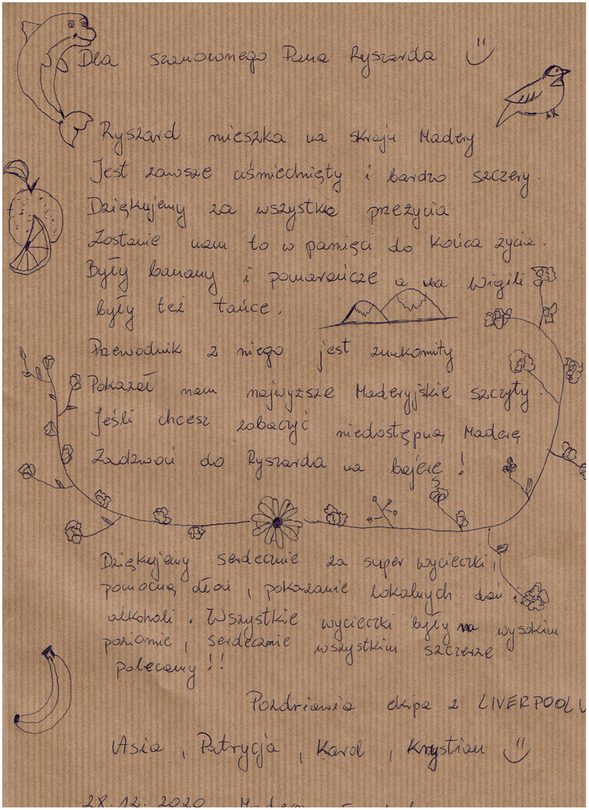 Dla szanownego Pana Ryszarda
Ryszard mieszka na skraju Madery
Jest zawsze uśmiechnięty i bardzo szczery.
Dziękujemy za wszystkie przeżycia
Zostanie nam to w pamięci do końca życia.
Były banany i pomarańcze a na Wigilii
były też tańce.
Przewodnik z niego jest znakomity
Pokazał nam najwyższe Maderyjskie szczyty.
Jeśli chcesz zobaczyć niedostępną Maderę
Zadzwoń do Ryszarda na bajerę!
Dziękujemy serdecznie za super wycieczki,
pomocną dłoń, pokazanie lokalnych dań i
alkoholi. Wszystkie wycieczki były na wysokim
poziomie, serdecznie wszystkim szczerze
polecamy!!
Pozdriawia ekipa z LIVERPOOLU
Asia, Patrycja, Karol, Krystian
28.12.2020